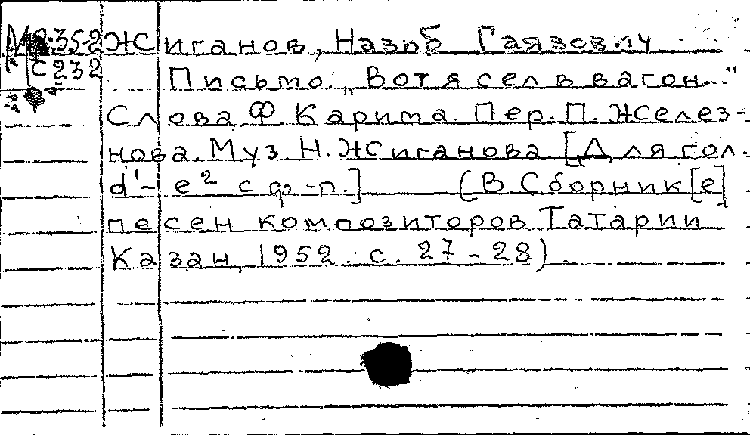 М 2-35-2
С 232
Жиганов, Назиб Гаязович
Письмо. „Вот я сел в вагон..."
Слова Ф. Карима. Пер. П. Желез-
нова. Муз. Н. Жиганова [Для гол.
d¹- e² с ф-п.] (В Сборник[е]
песен композиторов Татарии
Казан, 1952. с. 27-28).